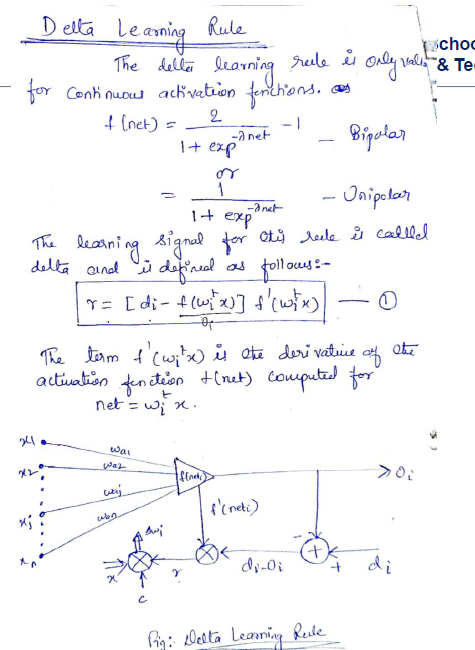 Delta Learning Rule
choo
The delta learning rule is only valid
& Te
for continuous activation functions. as
f(net) = 2 / 1 + exp^-λnet - 1 — Bipolar
or
= 1 / 1 + exp^-λnet — Unipolar
The learning signal for this rule is called
delta and is defined as follows:-
r = [di - f(wi^t x)] f'(wi^t x) — ①
Oi
The term f'(wi^t x) is the derivative of the
activation function f(net) computed for
net = wi^t x.
x1 wa1
x2 wa2 f(neti) Oi
waj f'(neti)
xj wan
Δwj -
xn x r di-Oi + + di
c
Fig: Delta Learning Rule